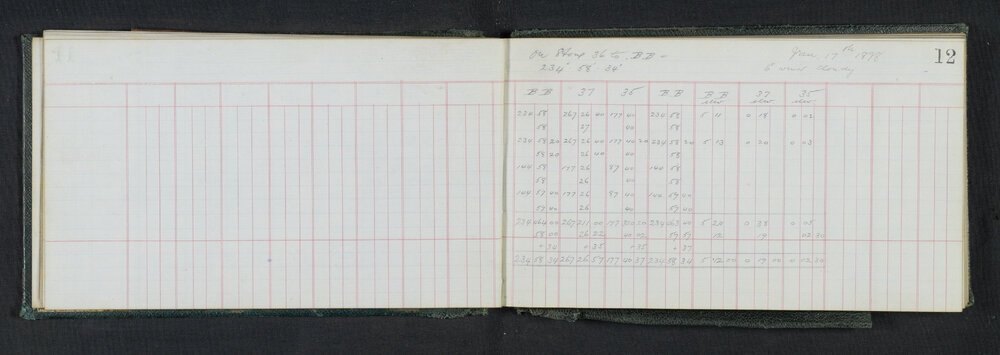 12
On Stone 36 to B B =
Jan 17th 1898
234° 58' 34"
wind cloudy
B B 37 35 B B B B elev 37 elev 35 elev
234 58 267 26 40 177 40 234 58 5 11 0 18 0 02
58 27 40 58
234 58 20 267 26 40 177 40 20 234 58 20 5 13 0 20 0 03
58 20 26 40 40 58
144 58 177 26 87 40 144 58
58 26 40 58
144 59 40 177 26 87 40 144 59 40
59 40 26 40 59 40
234 464 00 267 211 00 177 320 20 234 463 40 5 20 0 38 0 05
58 00 26 22 40 02 57 57 12 19 02 30
+ 34 + 35 + 35 + 37
234 58 34 267 26 57 177 40 37 234 58 34 5 12 00 0 19 00 0 02 30